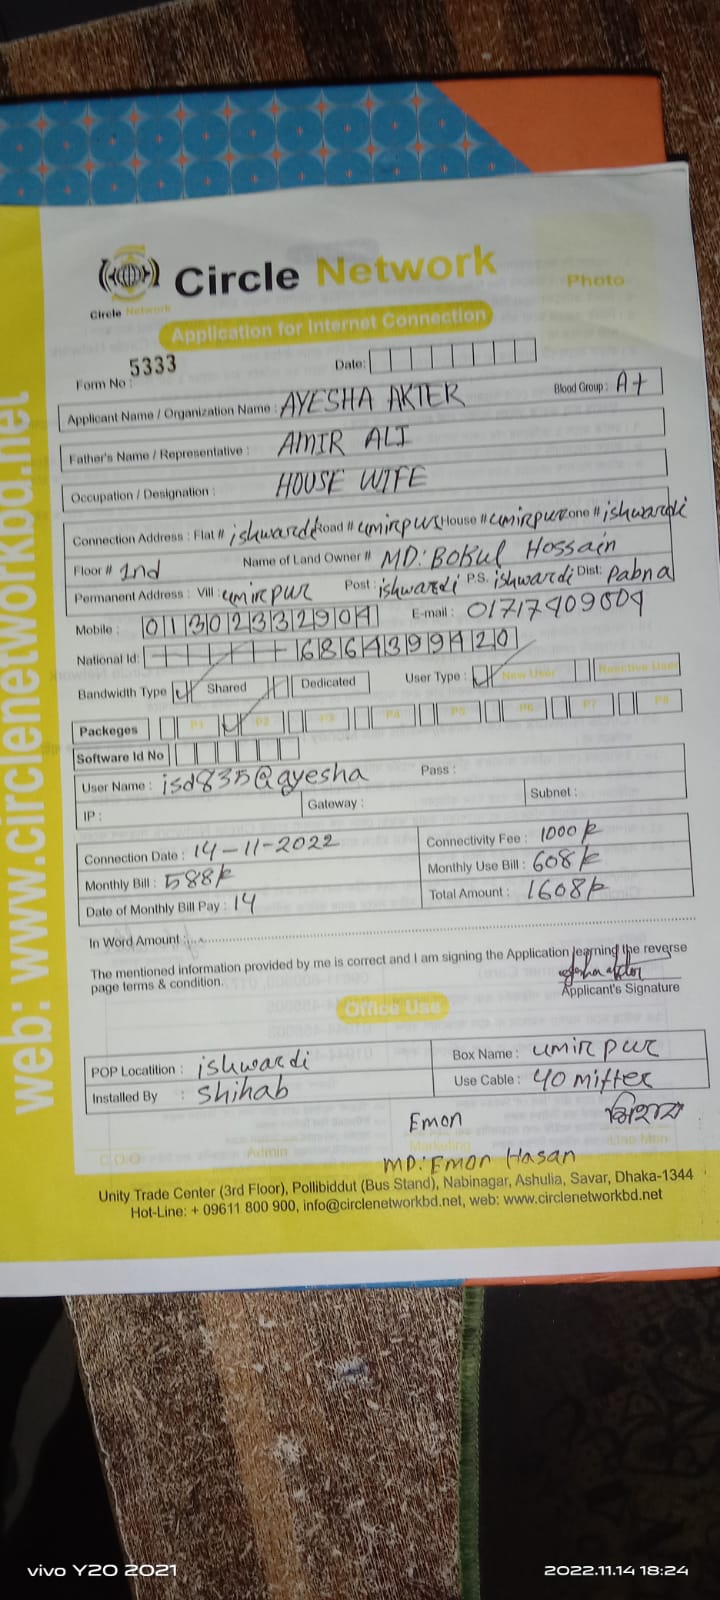 web: www.circlenetworkbd.net
Circle Network
Circle Network
Photo
Application for Internet Connection
Form No : 5333 Date:
Applicant Name / Organization Name : AYESHA AKTER Blood Group : A+
Father's Name / Representative : AMIR ALI
Occupation / Designation : HOUSE WIFE
Connection Address : Flat # ishwardi Road # umirpur House # umirpur Zone # ishwardi
Floor # 2nd Name of Land Owner # MD: BOKUL Hossain
Permanent Address : Vill : umirpur Post : ishwardi P.S. ishwardi Dist: Pabna
Mobile : 01302332904 E-mail : 01717909809
National Id: 6864399420
Bandwidth Type Shared Dedicated User Type : New User Reactive User
Packeges P1 P2 P3 P4 P5 P6 P7 P8
Software Id No
User Name : isd835@ayesha Pass :
IP : Gateway : Subnet :
Connection Date : 14-11-2022 Connectivity Fee : 1000
Monthly Bill : 588 Monthly Use Bill : 608
Date of Monthly Bill Pay : 14 Total Amount : 1608
In Word Amount :
The mentioned information provided by me is correct and I am signing the Application learning the reverse
page terms & condition.
Applicant's Signature
Office Use
POP Locatition : ishwardi Box Name : umirpur
Installed By : Shihab Use Cable : 40 mitter
Emon
C.O.O Admin Marketing
MD: Emon Hasan
Unity Trade Center (3rd Floor), Pollibiddut (Bus Stand), Nabinagar, Ashulia, Savar, Dhaka-1344
Hot-Line: + 09611 800 900, info@circlenetworkbd.net, web: www.circlenetworkbd.net
vivo Y20 2021 2022.11.14 18:24